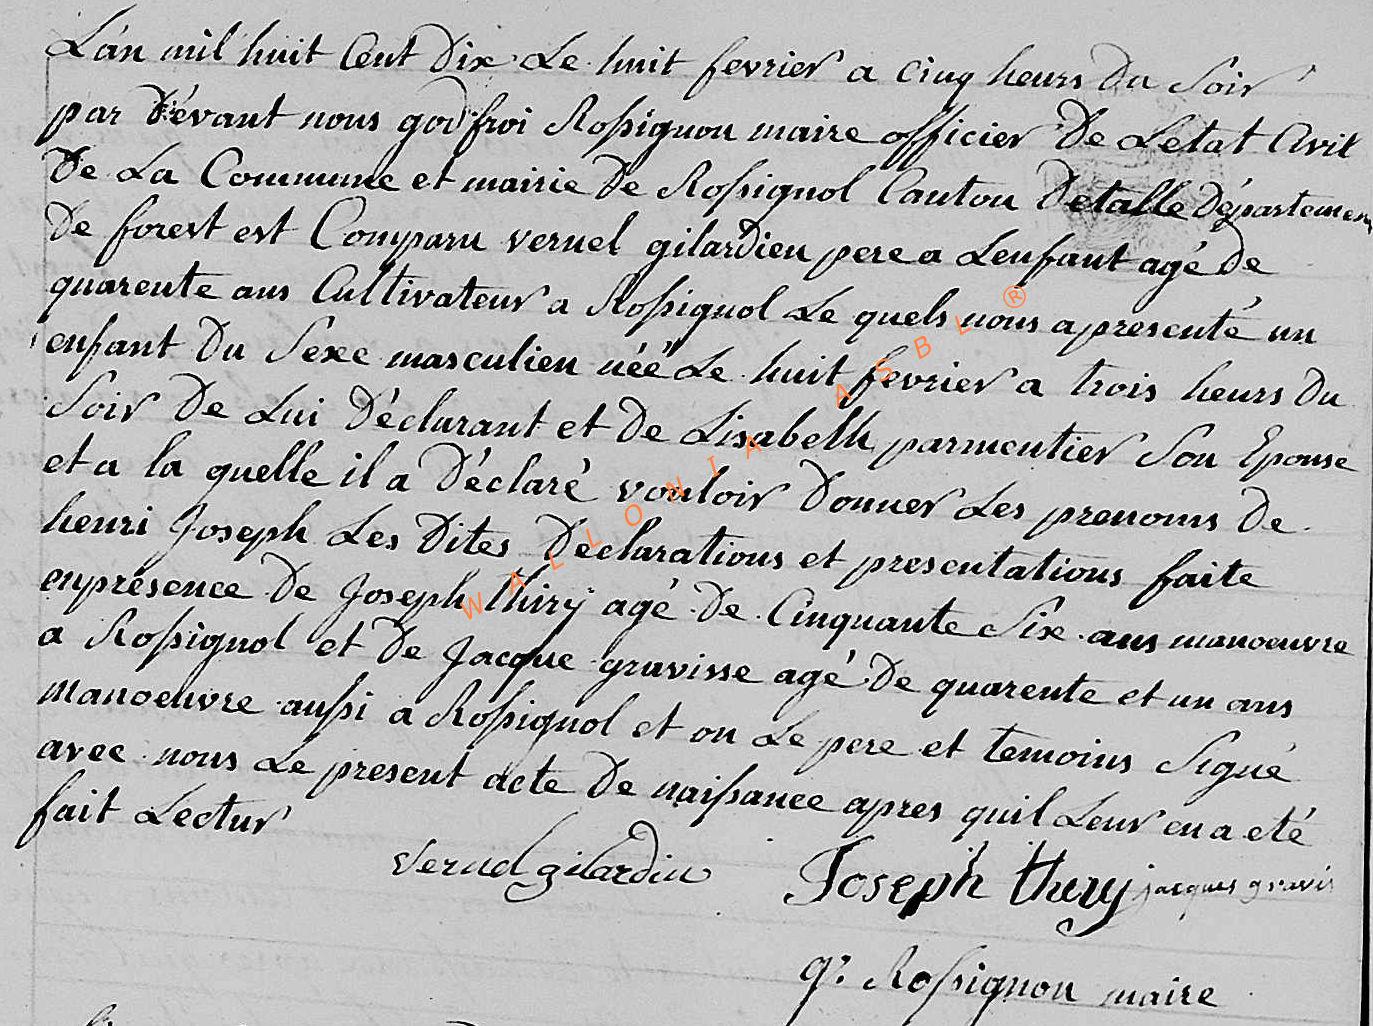 L'an mil huit Cent Dix Le huit fevrier a cinq heurs Du Soir
par Dévant nous godfroi Rossignon maire officier De Letat Civil
De La Commune et mairie De Rossignol Canton Detalle Département
De forest est Comparu vernel gilardien pere a Lenfant agé De
quarente ans Cultivateur a Rossignol Le quels nous a presenté un
enfant Du Sexe masculien néé Le huit fevrier a trois heurs Du
Soir De Lui Déclarant et De Lisabeth parmentier Son Epouse
et a la quelle il a Déclaré vouloir Donner Les prenoms De
henri Joseph Les Dites Déclarations et presentations faite
enprésence De Joseph thiry agé De Cinquante Six ans manoeuvre
a Rossignol et De Jacque gravisse agé De quarente et un ans
manoeuvre aussi a Rossignol et on Le pere et temoins Signé
avec nous Le present acte De naissance apres quil Leur en a eté
fait Lectur
vernel gilardin
Joseph thiry jacques gravis
g. Rossignon maire
WALLONIA ASBL ®